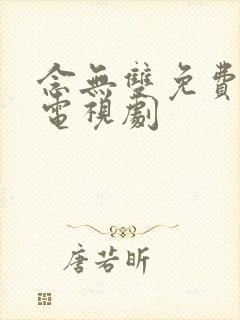 念無雙免費
電視劇
唐若昕